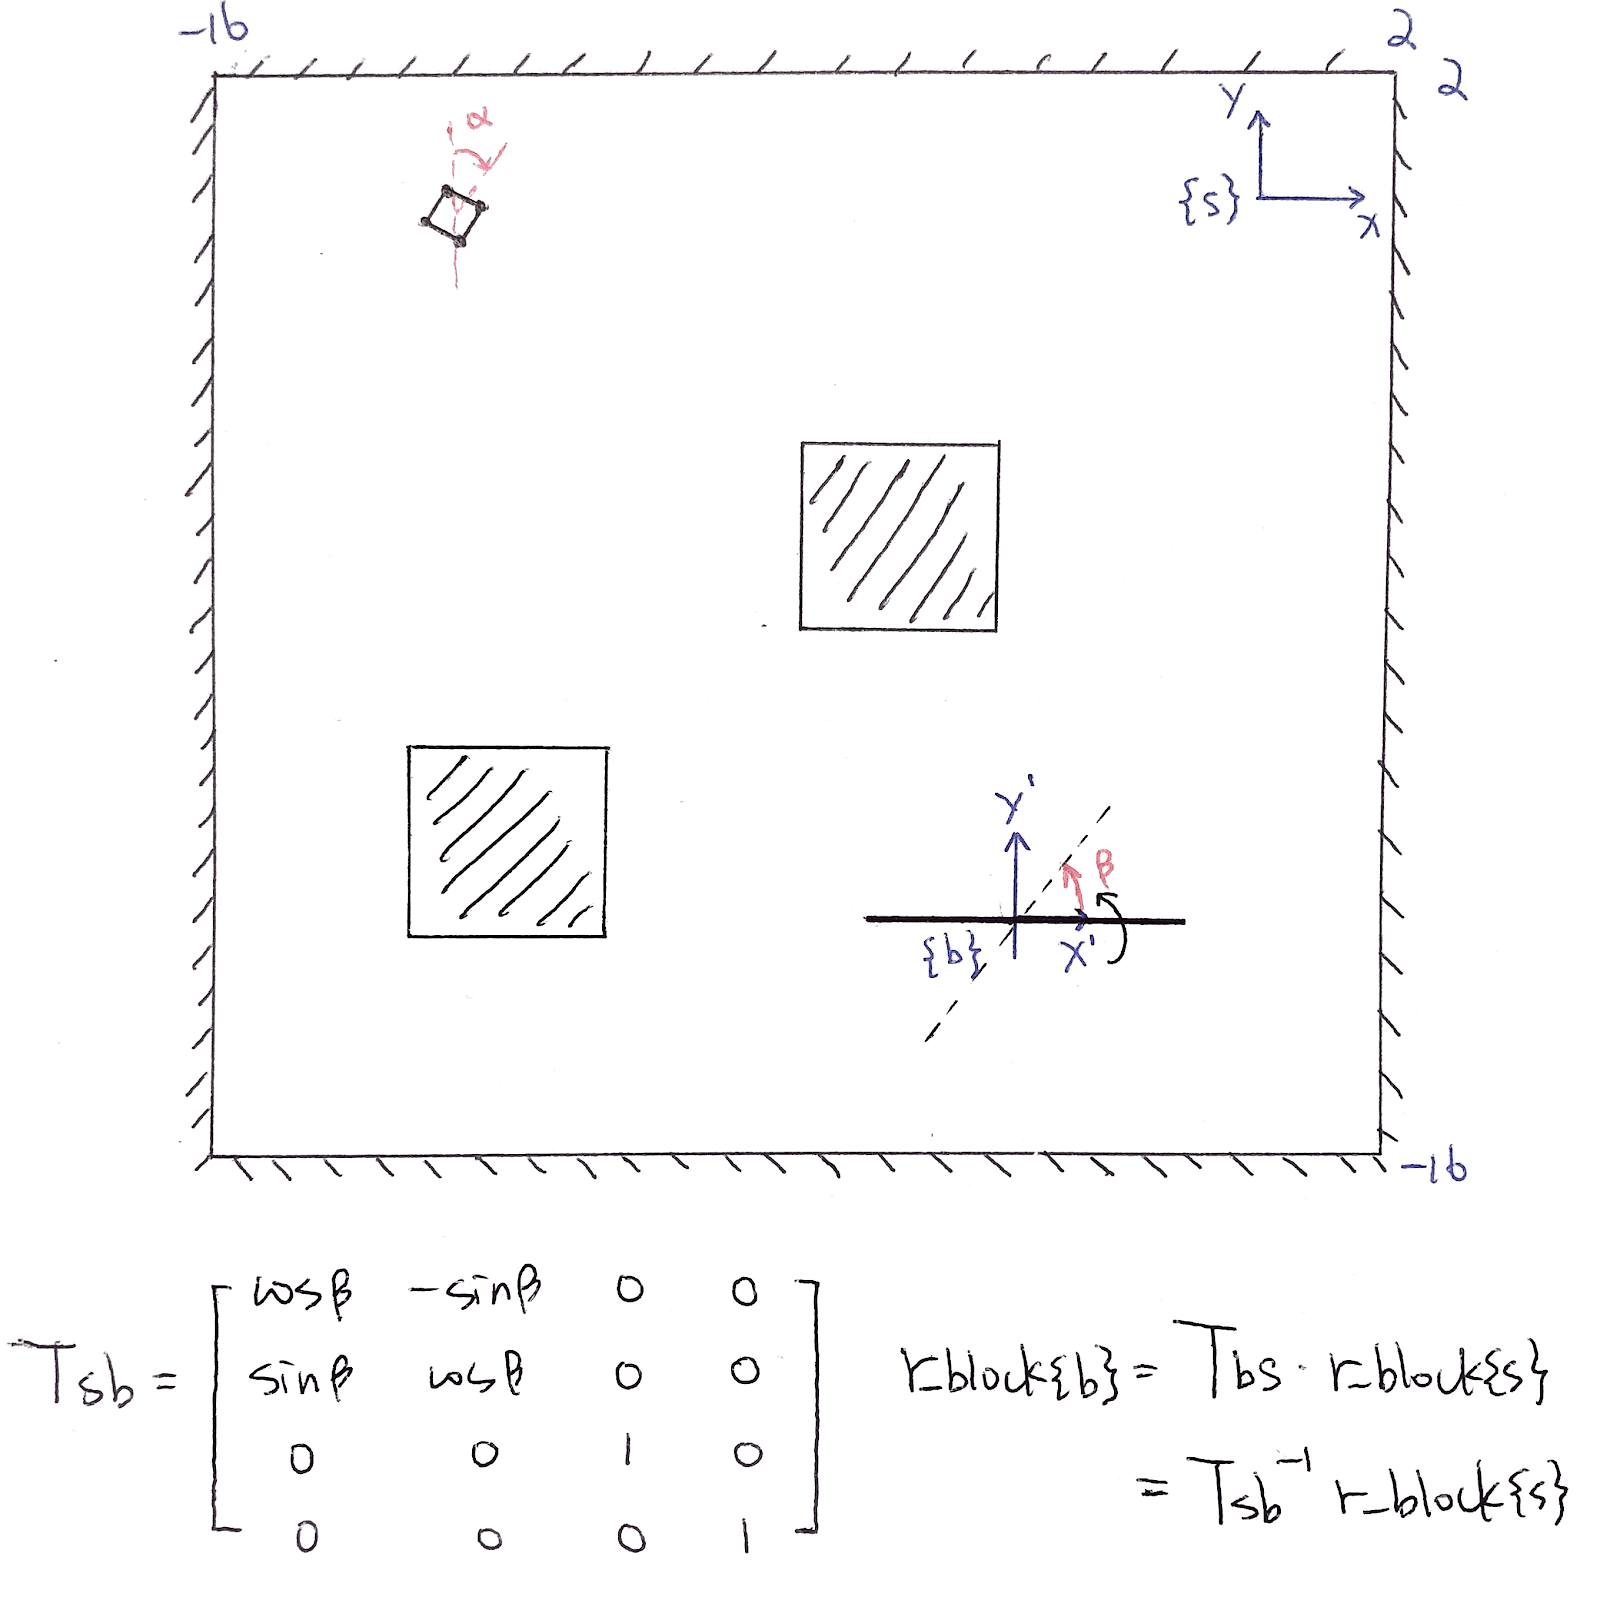 -16
2
2
α
Y
{s}
X
Y'
β
{b}
X'
-16
Tsb = [ cosβ -sinβ 0 0
sinβ cosβ 0 0
0 0 1 0
0 0 0 1 ]
r_block{b} = Tbs · r_block{s}
= Tsb⁻¹ r_block{s}